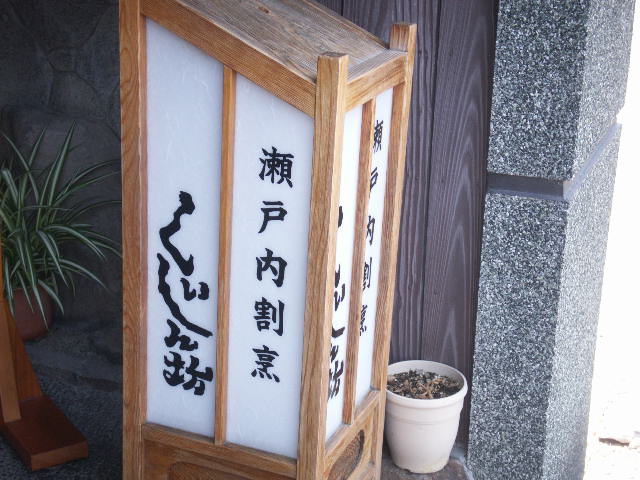 瀬戸内割烹
くいしん坊
瀬戸内割烹
くいしん坊